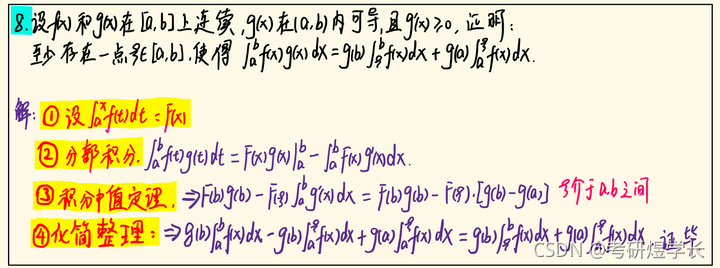 8.设f(x)和g(x)在[a,b]上连续,g(x)在(a,b)内可导,且g'(x)≥0,证明:
至少存在一点ξ∈[a,b],使得 ∫_a^b f(x)g(x)dx=g(b)∫_ξ^b f(x)dx+g(a)∫_a^ξ f(x)dx.
解:①设∫_a^x f(t)dt=F(x)
②分部积分.∫_a^b f(t)g(t)dt=F(x)g(x)|_a^b-∫_a^b F(x)g'(x)dx.
③积分中值定理.⇒F(b)g(b)-F(ξ)∫_a^b g'(x)dx=F(b)g(b)-F(ξ)·[g(b)-g(a)] ξ介于a,b之间
④化简整理:⇒g(b)∫_a^b f(x)dx-g(b)∫_a^ξ f(x)dx+g(a)∫_a^ξ f(x)dx=g(b)∫_ξ^b f(x)dx+g(a)∫_a^ξ f(x)dx.证毕
CSDN @考研煜学长